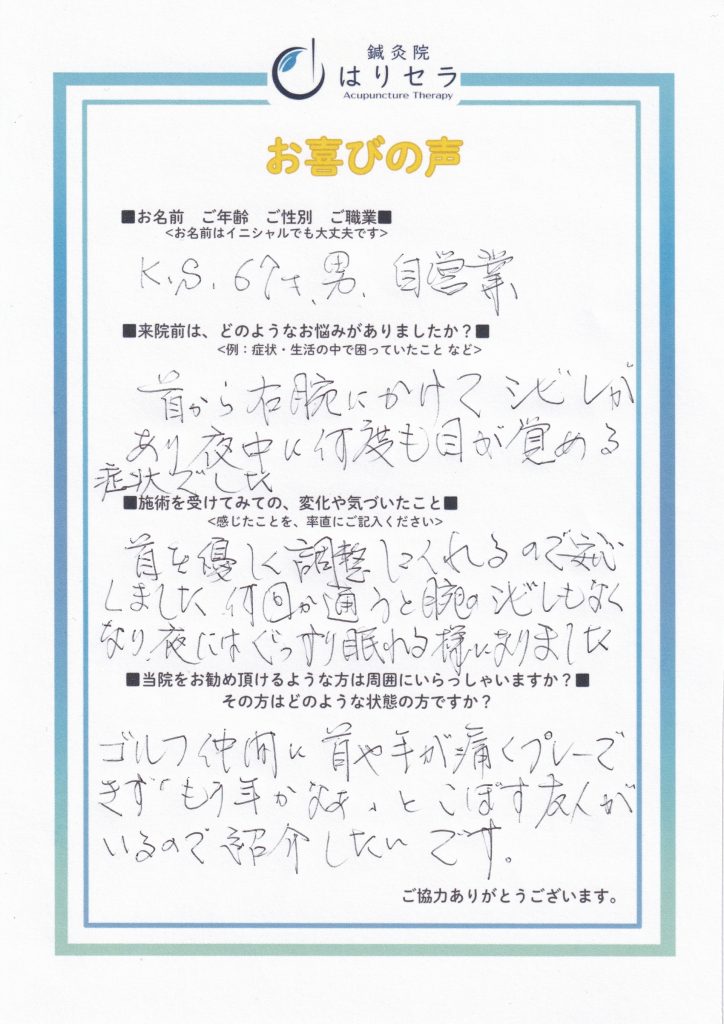 鍼灸院
はりセラ
Acupuncture Therapy
お喜びの声
■お名前　ご年齢　ご性別　ご職業■
<お名前はイニシャルでも大丈夫です>
K.S. 67才、男、自営業
■来院前は、どのようなお悩みがありましたか？■
<例：症状・生活の中で困っていたこと など>
首から右腕にかけてシビレが
あり夜中に何度も目が覚める
症状でした
■施術を受けてみての、変化や気づいたこと■
<感じたことを、率直にご記入ください>
首を優しく調整してくれるので安心
しました 何回か通うと腕のシビレもなく
なり、夜にはぐっすり眠れる様になりました
■当院をお勧め頂けるような方は周囲にいらっしゃいますか？■
その方はどのような状態の方ですか？
ゴルフ仲間に首や手が痛くプレーで
きず「もう年かなぁ」とこぼす友人が
いるので紹介したいです。
ご協力ありがとうございます。